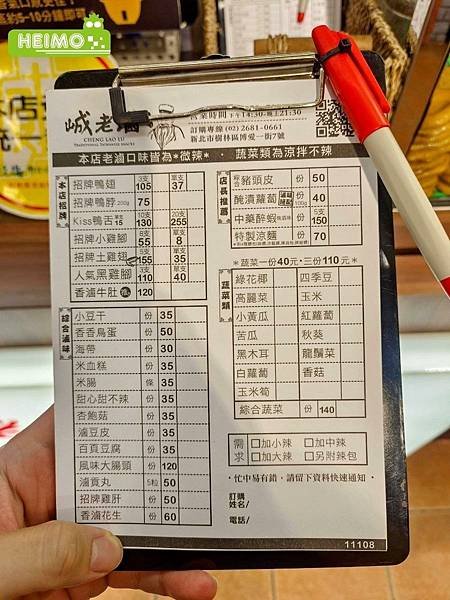 HEIMO
峸老滷
CHENG LAO LU
TRADITIONAL TAIWANESE SNACKS
營業時間 下午14:30-晚上21:30
訂購專線 (02) 2681-0661
新北市樹林區博愛一街7號
本店老滷口味皆為*微辣* · 蔬菜類為涼拌不辣
本店招牌
招牌鴨翅 3支 105 單支 37
招牌鴨脖 200g 75
Kiss鴨舌 單支 15 10支 130 20支 255
招牌小雞腳 8支 55 單支 8
招牌土雞翅 5支 155 單支 35
人氣黑雞腳 3支 110 單支 40
香滷牛肚 120
店長推薦
豬頭皮 份 50
醃漬蘿蔔 40
中藥醉蝦 5支 150
特製涼麵 份 70
*蔬菜一份40元·三份110元*
蔬菜類
綠花椰 四季豆
高麗菜 玉米
小黃瓜 紅蘿蔔
苦瓜 秋葵
黑木耳 龍鬚菜
白蘿蔔 香菇
玉米筍
綜合蔬菜 份 140
綜合滷味
小豆干 份 35
香香鳥蛋 份 50
海帶 份 30
米血糕 份 35
米腸 條 35
甜心甜不辣 份 35
杏鮑菇 份 35
滷豆皮 份 35
百頁豆腐 份 35
風味大腸頭 份 120
滷貢丸 5粒 50
招牌雞肝 份 50
香滷花生 份 60
需求 □加小辣 □加中辣
□加大辣 □另附辣包
·忙中易有錯，請留下資料快速通知·
訂購
姓名/
電話/
11108